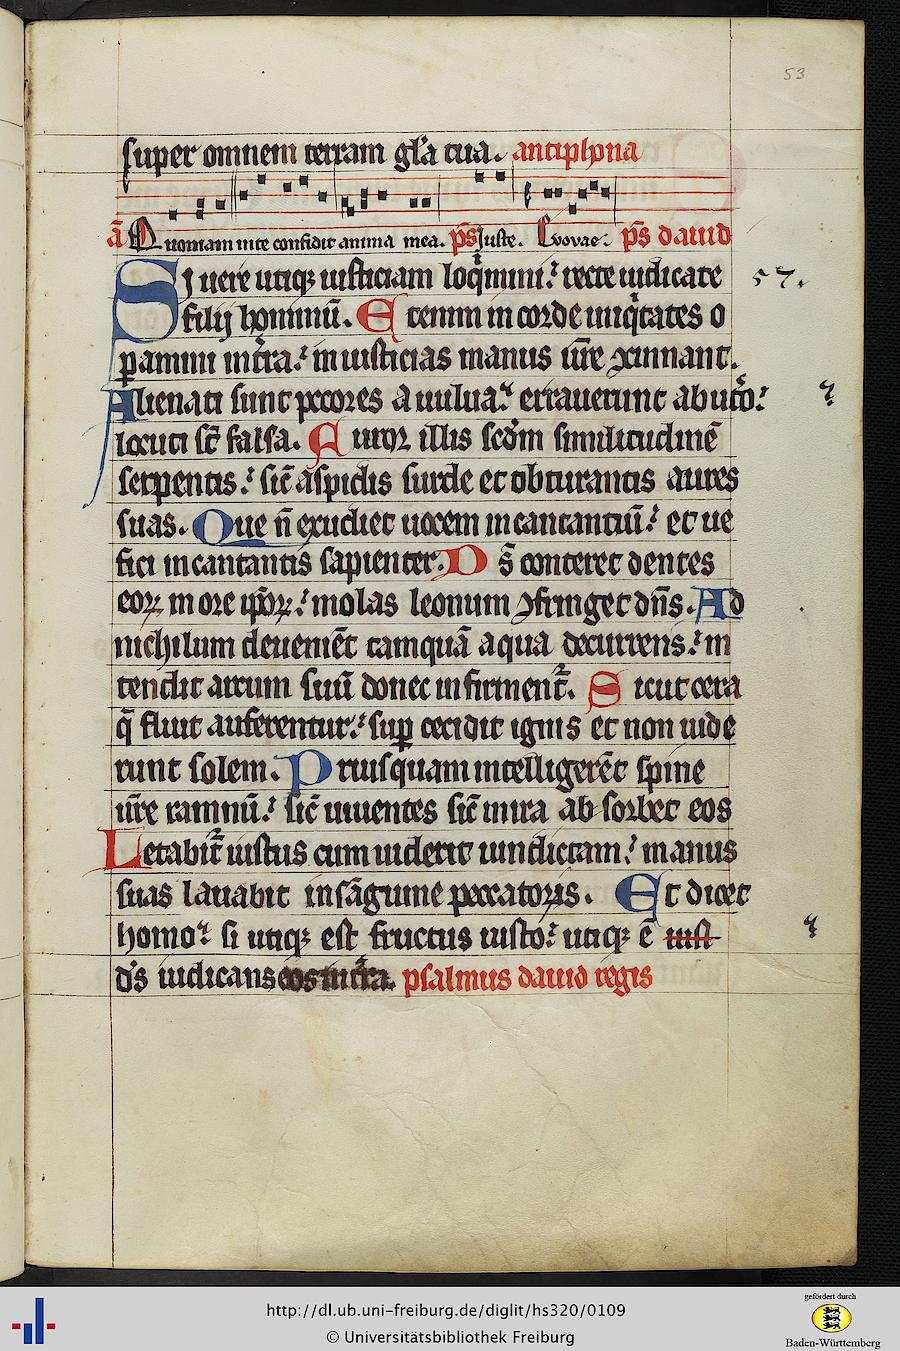 53
super omnem terram gl̄a tua. antiphona
a̅ Quoniam in te confidit anima mea. p̄s Iuste. Evovae. p̄s dauid
Si uere utiq; iusticiam loq̍mini: recte iudicate 57.
filij hominū. Etenim in corde iniq̍tates o
ꝑamini in tr̄a: iniusticias manus ur̄e ꝯcinnant.
Alienati sunt pccores a uulua: errauerunt ab ut̍o:
locuti st̄ falsa. Furor illis scd̄m similitudinē
serpentis: sic̄ aspidis surde et obturantis aures
suas. Que n̄ exudiet uocem incantantiū: et ue
fici incantantis sapienter. Ds̄ conteret dentes
eoꝝ in ore ip̄oꝝ: molas leonum ꝯfringet dn̄s. Ad
nichilum deueniēt tamquā aqua decurrens: in
tendit arcum suū donec infirment̄. Sicut cera
q̄ fluit auferentur: suꝑ cecidit ignis et non uide
runt solem. Priusquam intelligerēt spine
ur̄e ramnū: sic̄ uiuentes sic̄ in ira absorbet eos
Letabit̄ iustus cum uiderit uindictam: manus
suas lauabit in sāguine peccatoris. Et dicet
homo: si utiq; est fructus iusto: utiq; ē iust
d̄s iudicans eos in tr̄a. psalmus dauid regis
http://dl.ub.uni-freiburg.de/diglit/hs320/0109
© Universitätsbibliothek Freiburg
gefördert durch
Baden-Württemberg